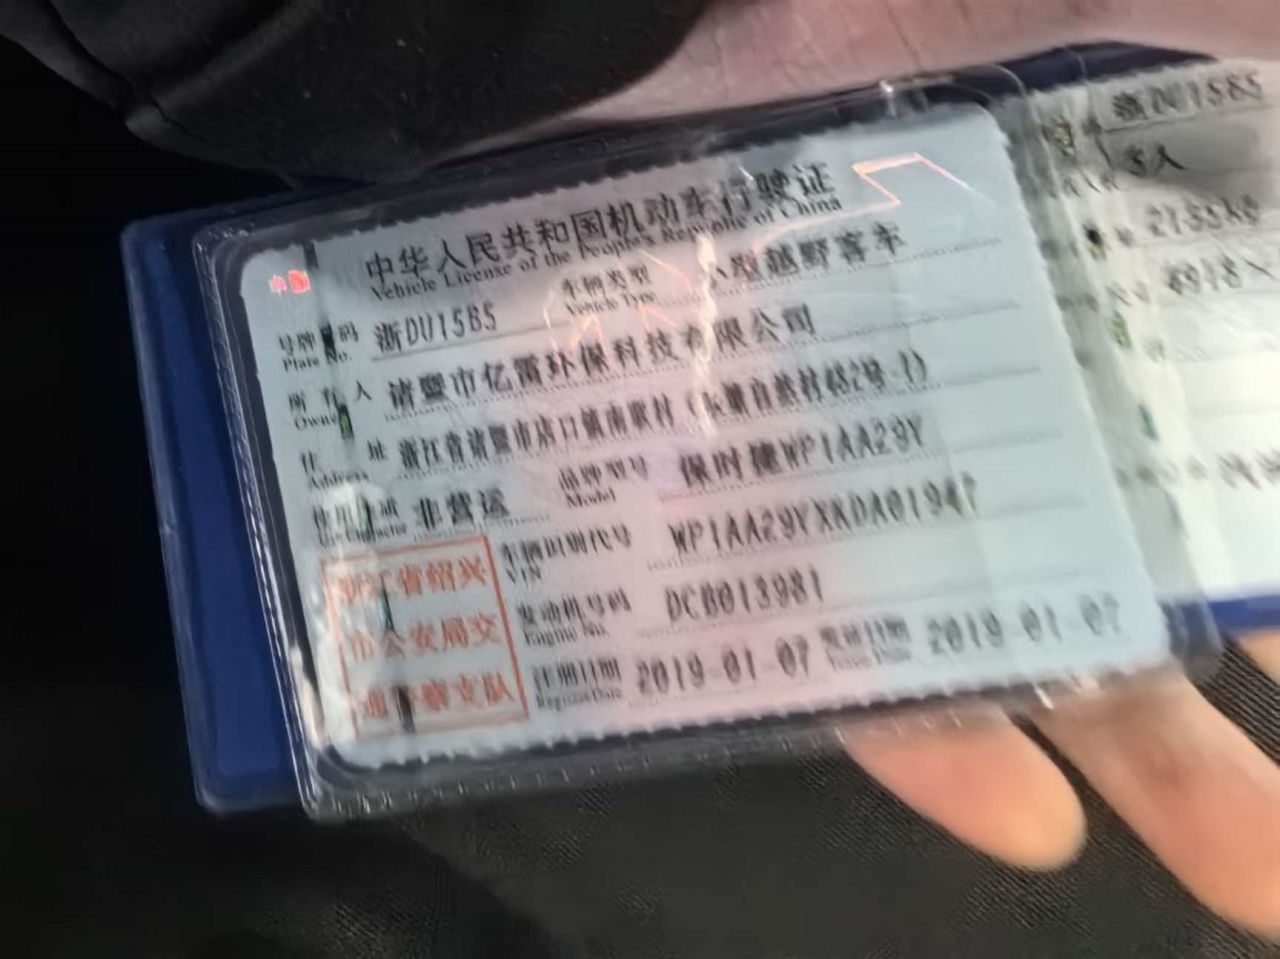 中华人民共和国机动车行驶证
Vehicle License of the People's Republic of China
号牌号码 浙DU15B5 车辆类型 小型越野客车
Plate No. Vehicle Type
所有人 诸暨市亿雷环保科技有限公司
Owner
住址 浙江省诸暨市店口镇
Address
使用性质 非营运 品牌型号 保时捷WP1AA29Y
Use Character Model
车辆识别代号 WP1AA29YXKDA01947
VIN
发动机号码 DCB013981
Engine No.
注册日期 2019-01-07 发证日期 2019-01-07
Register Date Issue Date
浙江省绍兴
市公安局交
通警察支队
浙DU15B5
5人